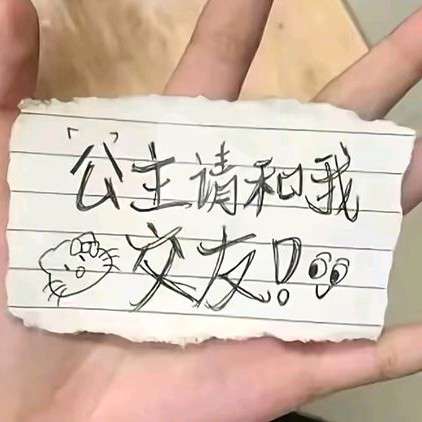 「公主请和我
交友!